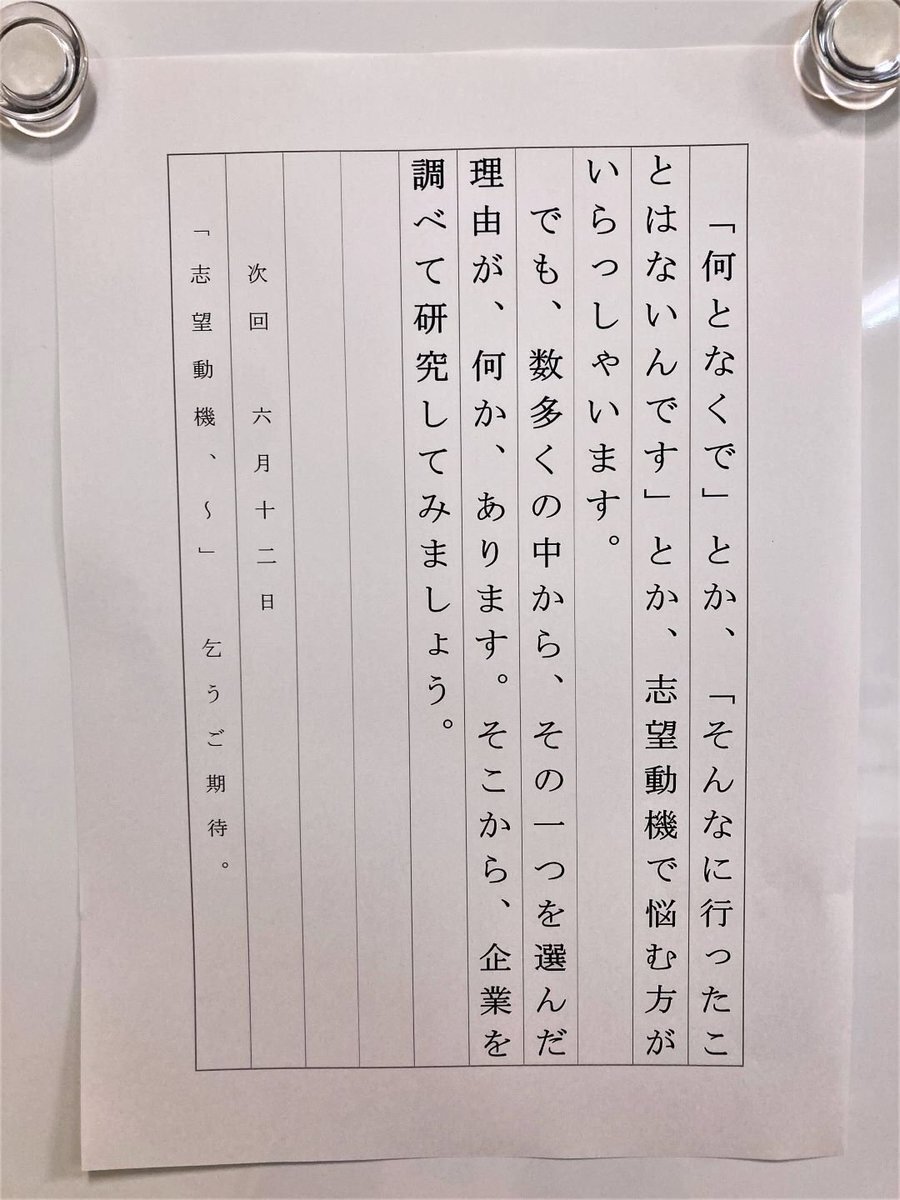 「何となくで」とか、「そんなに行ったこ
とはないんです」とか、志望動機で悩む方が
いらっしゃいます。
でも、数多くの中から、その一つを選んだ
理由が、何か、あります。そこから、企業を
調べて研究してみましょう。
次回 六月十二日
「志望動機、～」 乞うご期待。